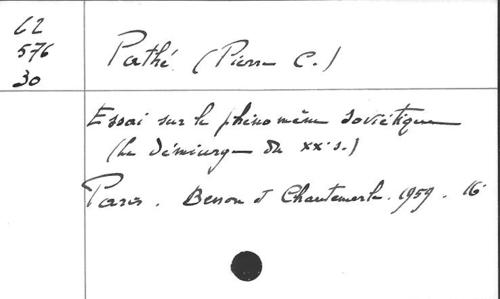 62
576
30
Pathé (Pierre C.)
Essai sur le phénomène soviétique
(Le démiurge du XXe s.)
Paris. Besson et Chantemerle. 1959. 16°